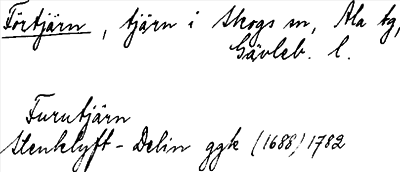 Förtjärn, tjärn i Skogs sn, Ala tg,
Gävleb. l.
Furutjärn
Stenklyft-Delin ggk (1688) 1782